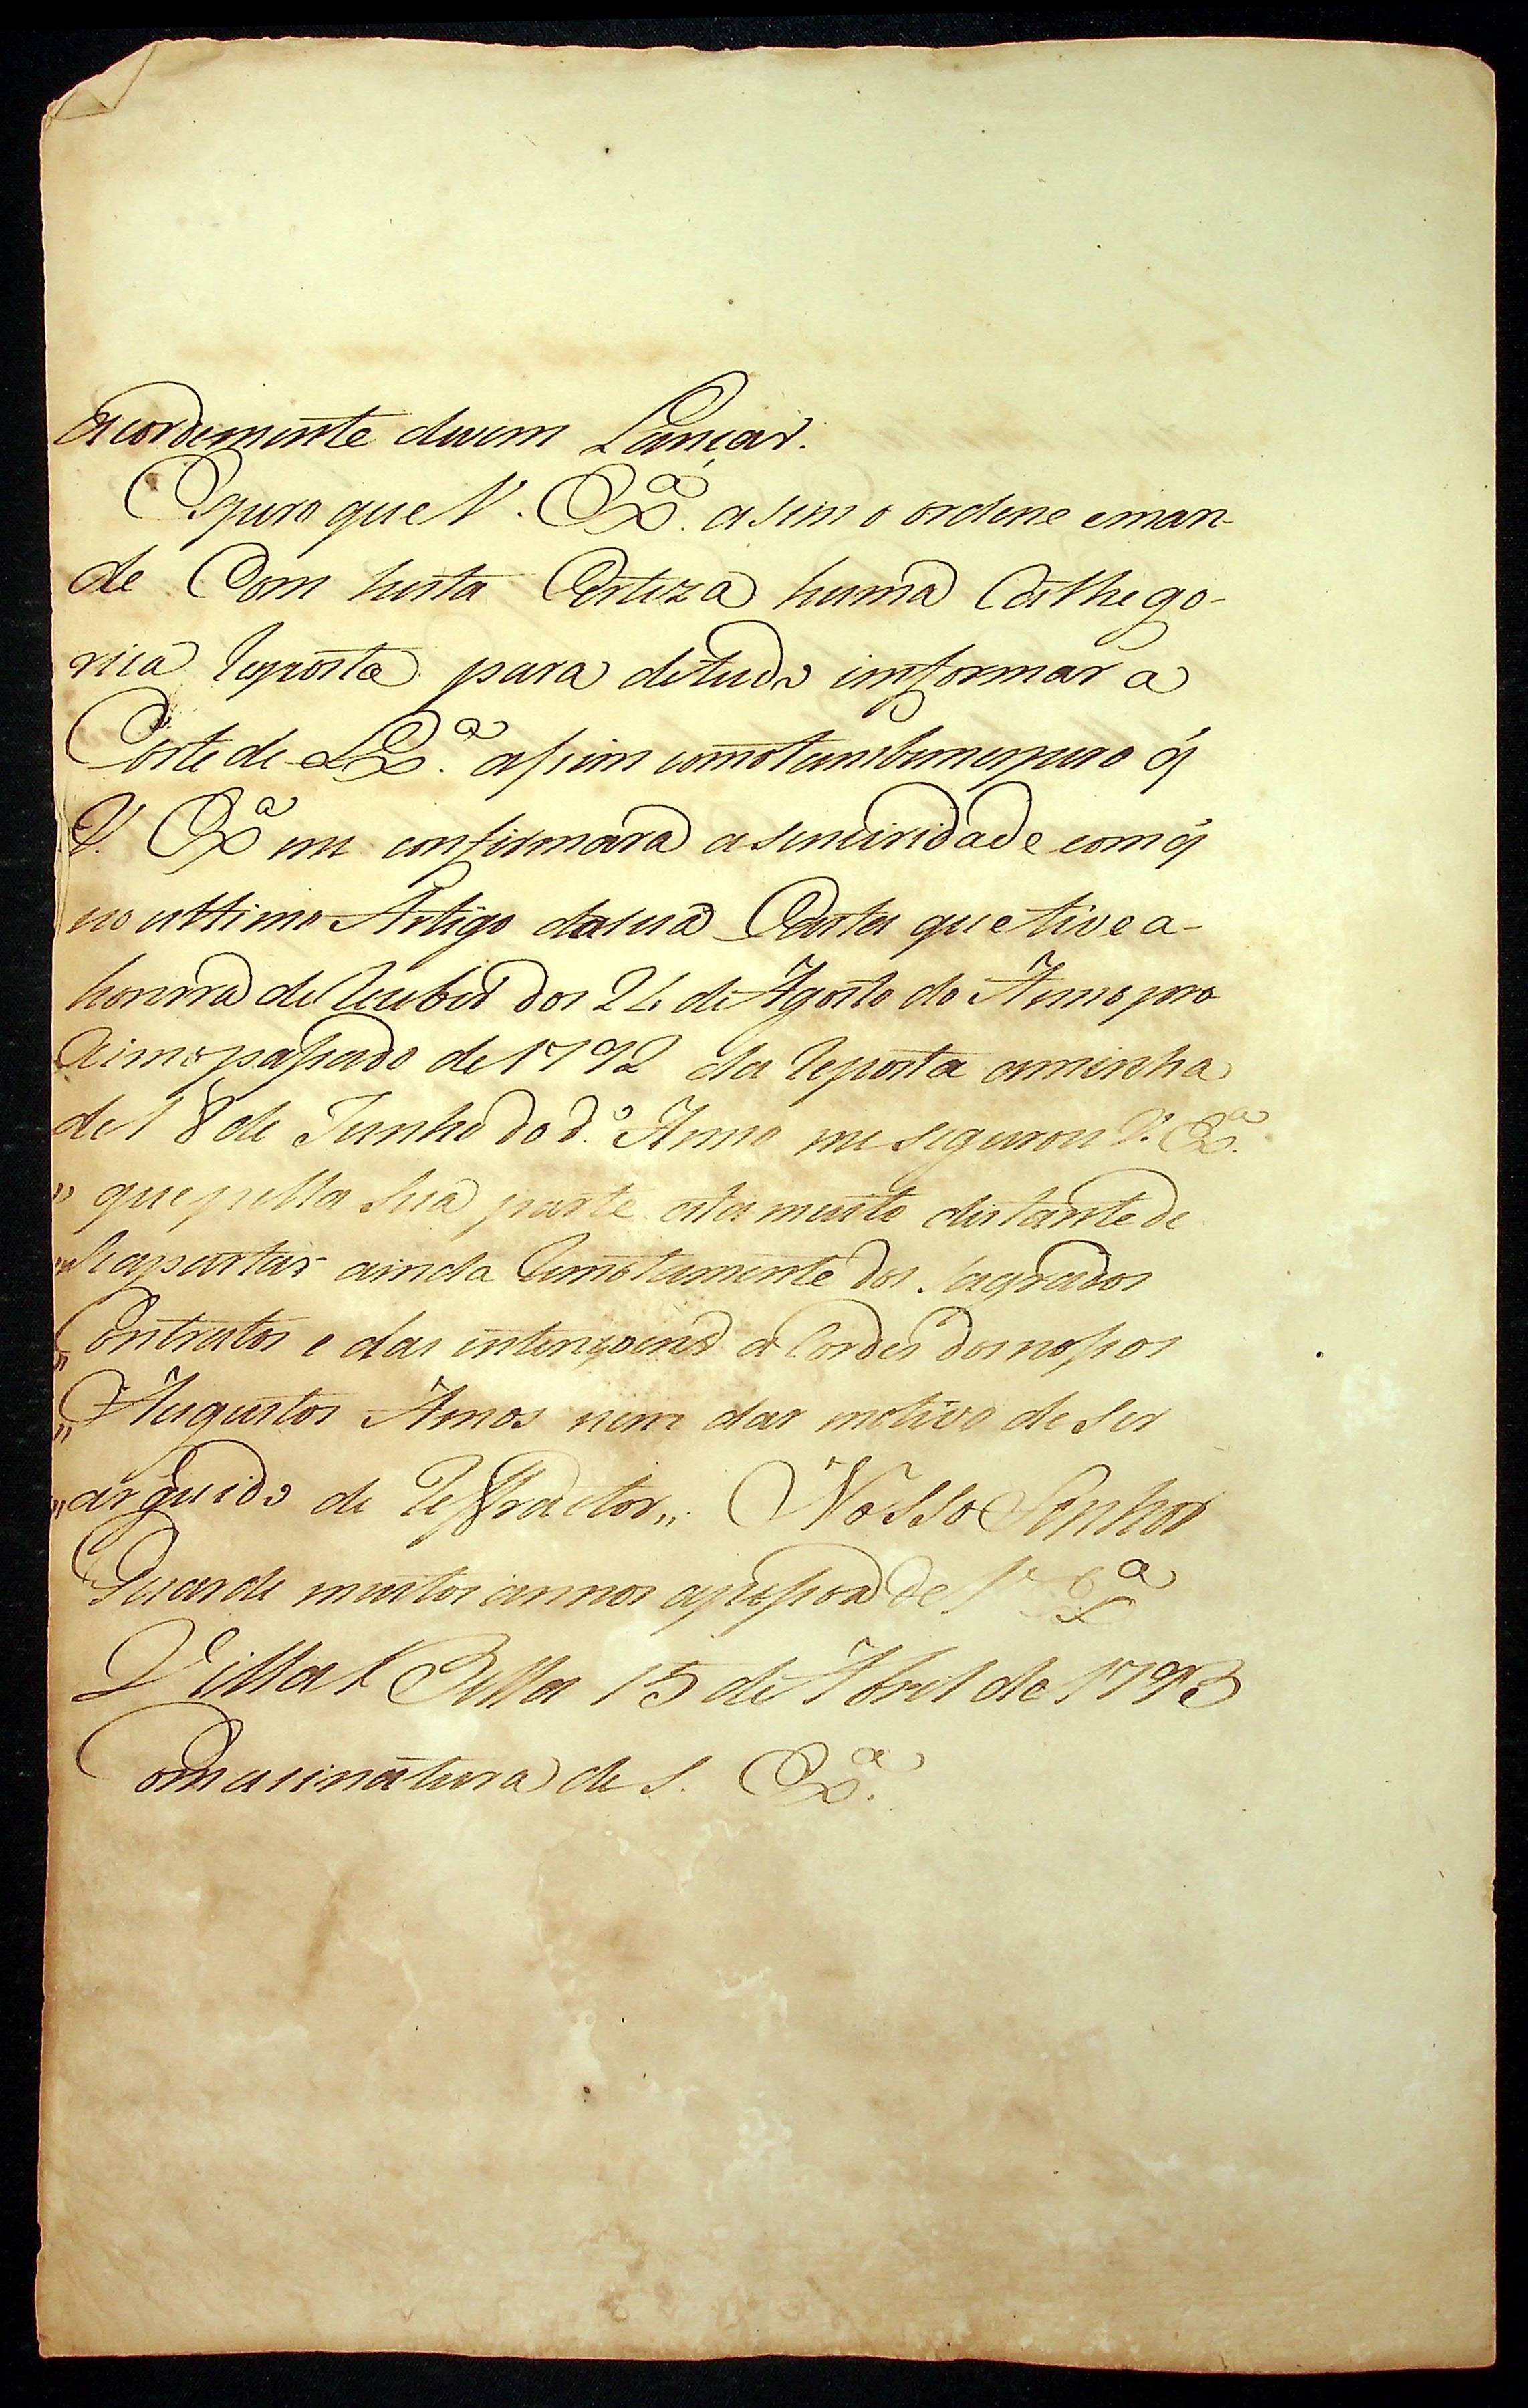 Acordemente devem Lançar.
Espero que V. Exª. asim o ordene e man-
de Com justa Certeza huma Cathego-
rica Resposta para de tudo imformar a
Corte de Lxª. assim como tambem espero q̃
V. Exª me confirmará a sinciridade com q̃
no ultimo Artigo da sua Carta que tive a-
honrra de Receber dos 24 de Agosto do Anno pro
ximo passado de 1792 da Reposta a minha
de 18 de Junho do d.º Anno me segurou V. Exª.
" que pella sua parte está muito distante de
" Se apartar ainda Remotamente dos sagrados
" Contratos e das intençoens a Cordes dos nossos
" Augustos Amos nem dar motivo de Ser
" arguido de Reffractor „. Nosso Senhor
Guarde muitos annos a pessoa de V Exª
Villa Bella 15 de Abril de 1793
Com asinatura de S. Exª.